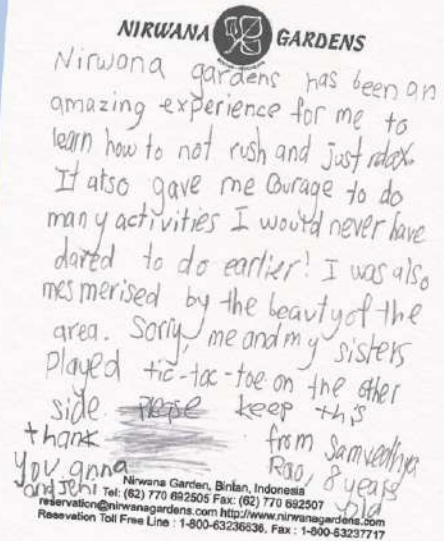 NIRWANA GARDENS
Nirwana gardens has been an
amazing experience for me to
learn how to not rush and just relax.
It also gave me Courage to do
many activities I would never have
dared to do earlier! I was also
mesmerised by the beauty of the
area. Sorry, me and my sisters
played tic-tac-toe on the other
side please keep this
thank from Samvedhya
you anna Rao, 8 years
and Jehi old
Nirwana Garden, Bintan, Indonesia
Tel: (62) 770 692505 Fax: (62) 770 692507
reservation@nirwanagardens.com http://www.nirwanagardens.com
Resevation Toll Free Line : 1-800-63236636, Fax : 1-800-63237717